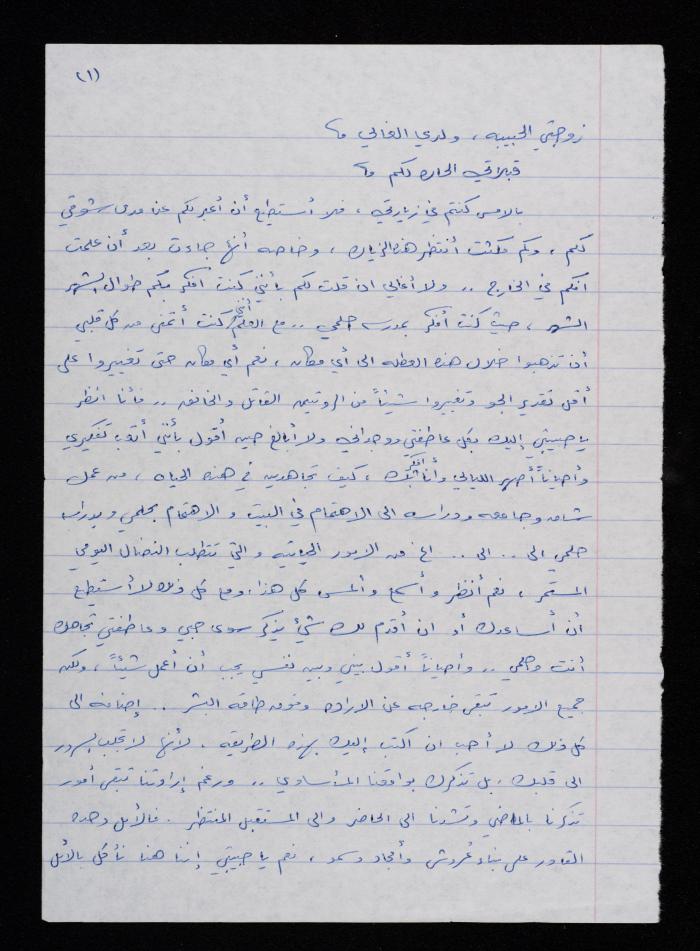 (١)
زوجتي الحبيبه ، ولدي الغالي
قبلاتي الحاره لكم
بالامس كنتم في زيارتي ، فلا أستطيع أن أعبر لكم عن مدى شوقي
لكم ، وكم كنت أنتظر هذه الزياره ، وخاصه أنها جاءت بعد أن علمت
انكم في الخارج .. ولا أغالي ان قلت لكم بأنني كنت افكر بكم طوال الشهر
الشهر ، حيث كنت أفكر بمدرسه حلمي .. مع العلم أنني كنت أتمنى من كل قلبي
أن تذهبوا خلال هذه العطله الى أي مكان ، نعم أي مكان حتى تغييروا على
أقل تقدير الجو وتغيروا شيئاً من الروتين القاتل والخانق .. فأنا انظر
يا حبيبتي إليك بكل عاطفتي ووجداني ولا أبالغ حين أقول بأنني أتوب تفكيري
وأحياناً أصهر الليالي وأنا افكر بك ، كيف تجاهدين في هذه الحياه ، من عمل
شاق وجامعه ودراسه الى الاهتمام في البيت و الاهتمام بحلمي وبدراسه
حلمي الى .. الى .. اخ من الامور الحياتيه والتي تتطلب النضال اليومي
المستمر ، نعم أنظر وأسمع وألمس كل هذا ، ومع كل ذلك لا أستطيع
أن أساعدك أو ان أقدم لك شئ يذكر سوى حبي وعاطفتي تجاهك
أنت وحلمي .. وأحياناً أقول بيني وبين نفسي يجب أن أعمل شيئاً ، ولكن
جميع الامور تبقى خارجه عن الاراده وفوق طاقه البشر .. إضافه الى
كل ذلك لا أحب ان اكتب إليك بهذه الطريقه . لأنها لا تجلب السرور
الى قلبك . بل تذكرك بواقعنا المأساوي .. ورغم إرادتنا تبقى أمور
تذكرنا بالماضي وتشدنا الى الحاضر والى المستقبل المنتظر . فالأمل وحده
القادر على بناء عروش وأمجاد وسمو ، نعم يا حبيبتي إننا هنا نأكل بالأمل